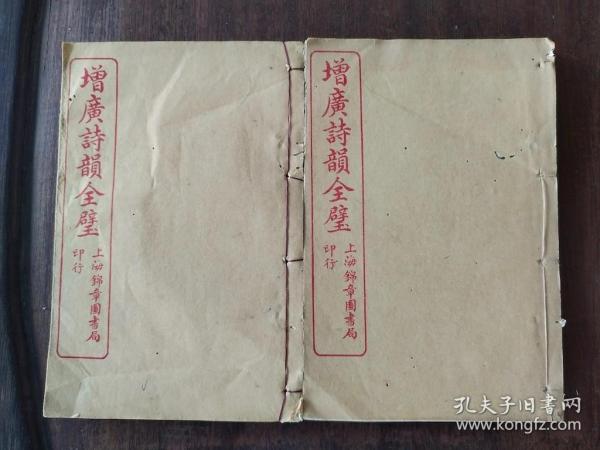 增廣詩韻全璧
上海錦章圖書局
印行
增廣詩韻全璧
上海錦章圖書局
印行
孔夫子旧书网
www.kongfz.com